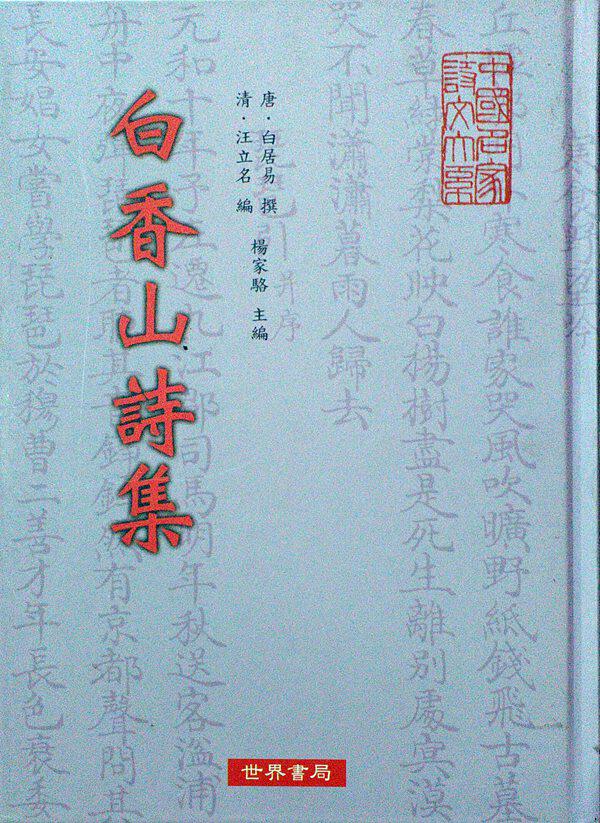 中國名家
詩文大系
白香山詩集
唐·白居易 撰
清·汪立名 編
楊家駱 主編
寒食野望吟
丘 寒食誰家哭風吹曠野紙錢飛古墓
春草 棠梨花映白楊樹盡是死生離別處冥漠
哭不聞瀟瀟暮雨人歸去
琶引并序
元和十年予左遷九江郡司馬明年秋送客湓浦
舟中夜彈琵琶者聽其音錚錚然有京都聲問其
長安娼女嘗學琵琶於穆曹二善才年長色衰委
世界書局